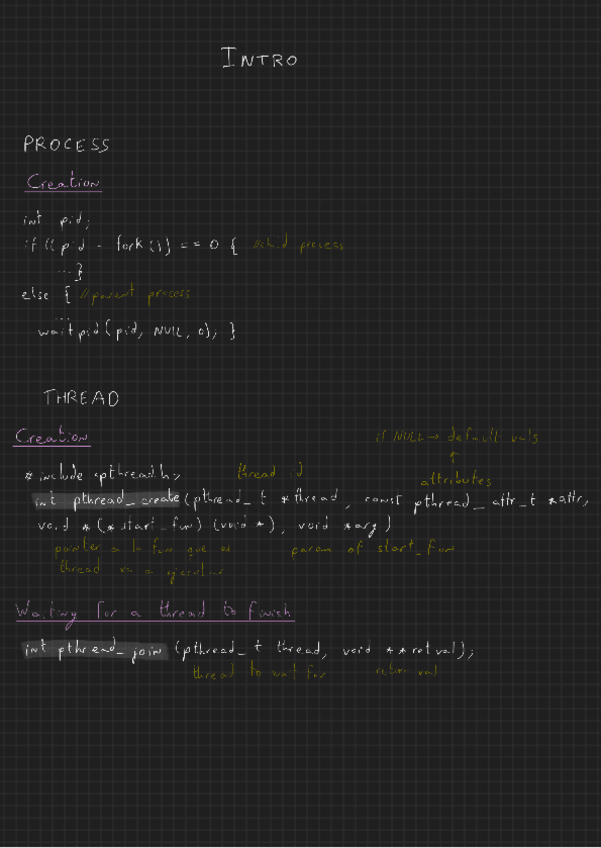 INTRO
PROCESS
Creation
int pid;
if ((pid = fork()) == 0 { //child process
...}
else { //parent process
...
waitpid(pid, NULL, 0); }
THREAD
Creation
if NULL → default vals
↑
#include <pthread.h> thread id attributes
int pthread_create (pthread_t *thread, const pthread_attr_t *attr,
void *(*start_fun) (void *), void *arg)
pointer a la fun que el param of start_fun
thread va a ejecutar
Waiting for a thread to finish
int pthread_join (pthread_t thread, void **retval);
thread to wait for return val